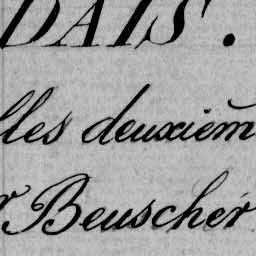 DAIS.
lles deuxiem
r Beuscher